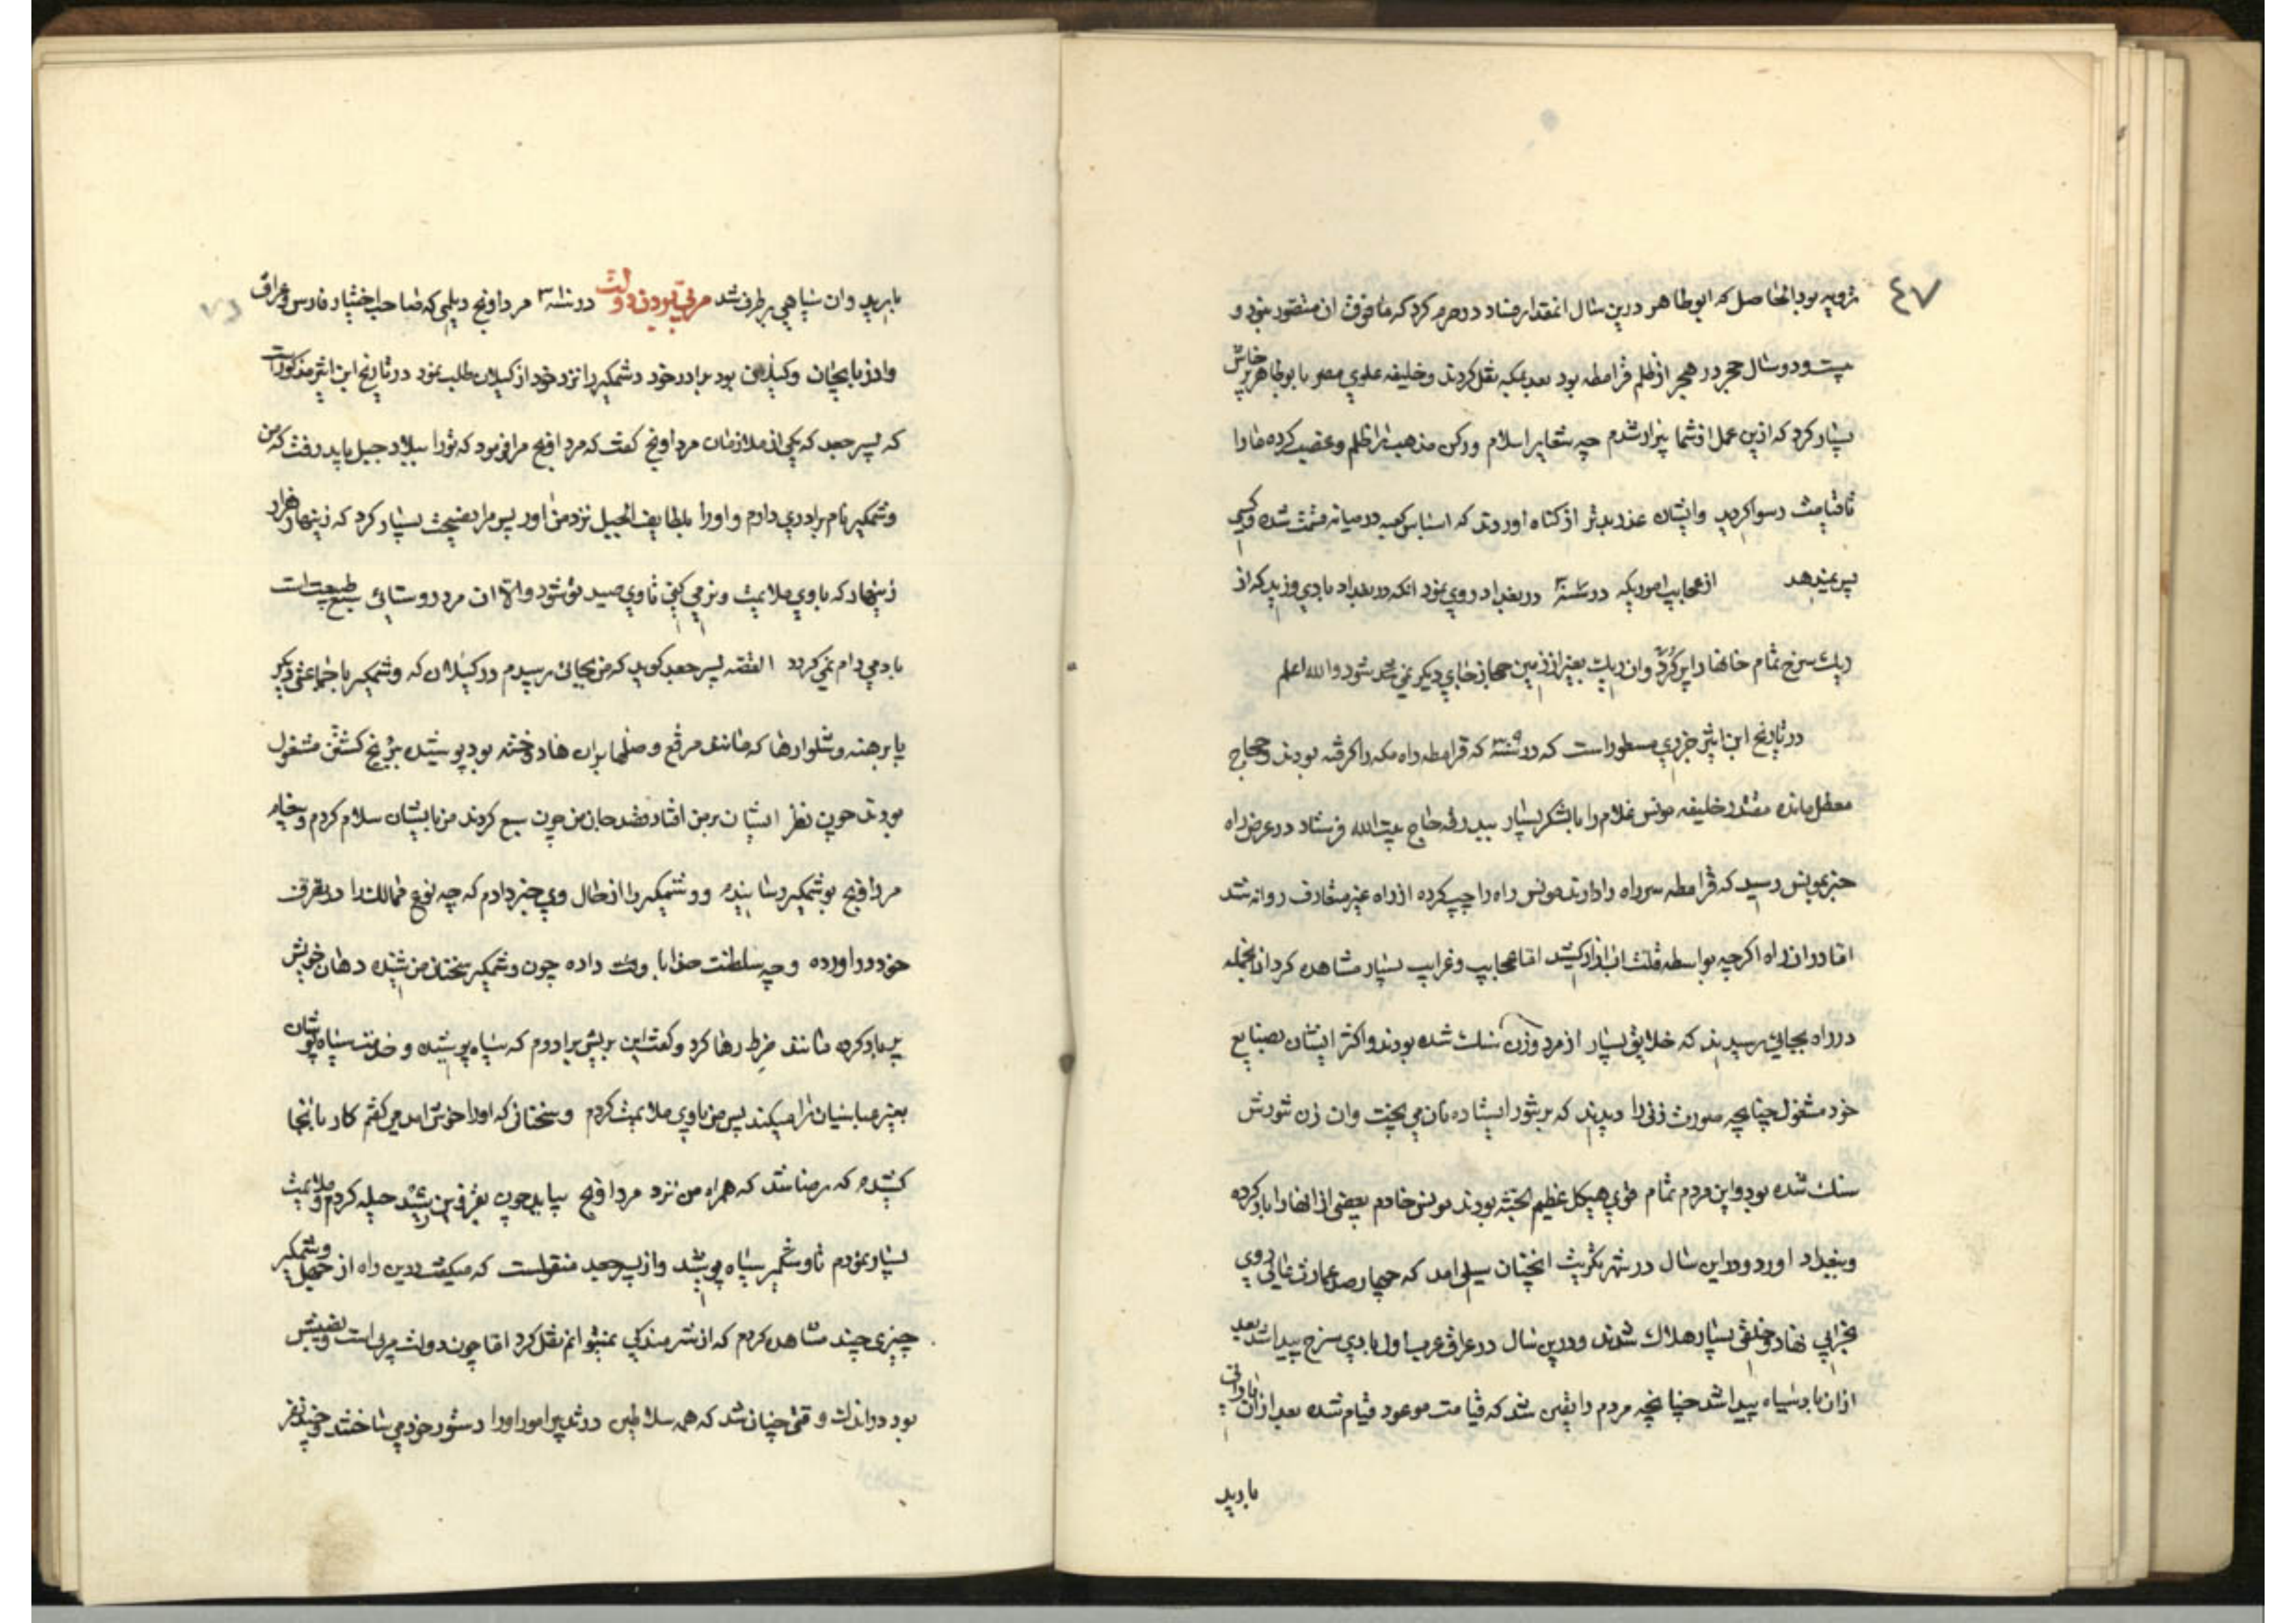 ٤٧
ترویه بود الحاصل که ابوطاهر درین سال انمقدار فساد در حرم کرد که مافوق ان متصور نبود و
بیست و دو سال حجر در هجر از ظلم قرامطه بود بعد بمکه نقل کردند و خلیفه علوی مصر با بوطاهر پرخاش
بسیار کرد که ازین عمل از شما بیزار شدم چه شعایر اسلام و رکن مذهب را ظلم و غصب کرده مارا
تا قیامت رسوا کردید و ایشان عذر بدتر از کناه اوردند که اساس کعبه در میانه قسمت شده و کسی
پس نمیدهد از عجایب امور یکه در سنه در بغداد روی نمود انکه در بغداد بادی وزید که از
ریک سرخ تمام خانها را پر کرد و ان ریک بغیر از زمین حجاز جای دیکر نمی شود والله اعلم
در تاریخ ابن اثیر جزری مسطور است که در سنه که قرامطه راه مکه را کرفته بودند و حجاج
معطل مانده مقتدر خلیفه مونس غلام را با لشکر بسیار ببدرقه حاج بیت الله فرستاد در عرض راه
خبر بمونس رسید که قرامطه سر راه را دارند مونس راه را چپ کرده از راه غیر متعارف روانه شد
اما در ان راه اکرچه بواسطه قلت اب ازار کشید اما عجایب و غرایب بسیار مشاهده کرد از انجمله
در راه بجائی رسیدند که خلایق بسیار از مرد و زن سنک شده بودند و اکثر ایشان بصنایع
خود مشغول چنانچه صورت زنی را دیدند که بر تنور ایستاده نان می پخت وان زن تنورش
سنک شده بود و این مردم تمام قوی هیکل عظیم الجثه بودند مونس خادم بعضی از انها را بار کرده
و ببغداد اورد و در این سال در شهر تکریت انچنان سیلی امد که چهارصد عمارت عالی روی
بخرابی نهاد و خلقی بسیار هلاک شدند و درین سال در عراق عرب اول بادی سرخ پیدا شد بعد
از ان باد سیاه پیدا شد چنانچه مردم را یقین شد که قیامت موعود قیام شده بعد از ان بارانی
بارید
بارید و ان سیاهی بر طرف شد مربی بودن دولت در سنه مرداویج دیلمی که صاحب اختیار فارس و عراق
واذربایجان وکیلان بود برادر خود وشمکیر را نزد خود از کیلان طلب نمود در تاریخ ابن اثیر مذکور است
که پسر جعد که یکی از ملازمان مرداویج کفت که مرداویج مرا فرمود که تورا ببلاد جیل باید رفت که من
وشمکیر نام برادری دارم و اورا بلطایف الحیل نزد من اور پس مرا نصیحت بسیار کرد که زینهار هزار
زینهار که باوی ملایمت و نرمی کنی تا وی صید تو شود و الا ان مرد روستائی سبع طبیعت است
بادمی رام نمی کردد القصه پسر جعد کوید که من بجائی رسیدم در کیلان که وشمکیر با جماعتی دیکر
پا برهنه و شلوارها که مانند مرقع و صلها بران ها دوخته بود پوشیده ببرنج کشتن مشغول
بودند چون نظر ایشان بر من افتاد قصد جان من چون سبع کردند من بایشان سلام کردم و پیغام
مرداویج بوشمکیر رسانیدم و وشمکیر را از حال وی خبر دادم که چه نوع ممالک را در تصرف
خود در اورده و چه سلطنت خدا با وی داده چون وشمکیر سخنان من شنیده دهان خویش
پر باد کرده مانند ضرط رها کرد و کفت این بریش برادرم که سیاه پوشیده و خدمت سیاه پوشان
یعنی عباسیان را میکند پس من باوی ملایمت کردم و سخنانی که اورا خوش امد می کفتم کار بانجا
کشیده که رضا شد که همراه من نزد مرداویج بیاید چون بقزوین رسید حیله کردم و ملایمت
بسیار نمودم تا وشمکیر سیاه پوشید و از پسر جعد منقولست که میکفت درین راه از جهل وشمکیر
چیزی چند مشاهده کردم که از شرمندکی نمیتوانم نقل کرد اما چون دولت مربی است و نصیبش
بود در اندک وقتی چنان شد که همه سلاطین در تدبیر امور اورا دستور خود می ساختند و چند نفر